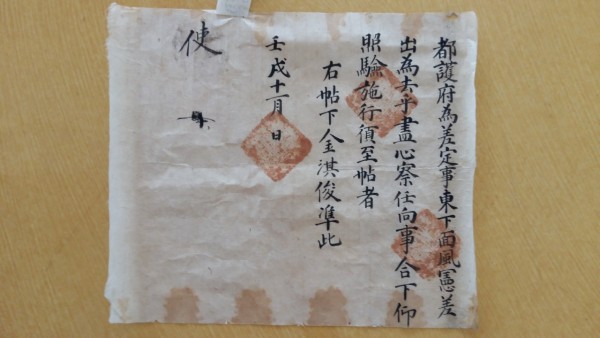 都護府為差定事東下面風憲差
出為去乎盡心察任向事合下仰
照驗施行須至帖者
右帖下金淇俊準此
壬戌十一月 日
使